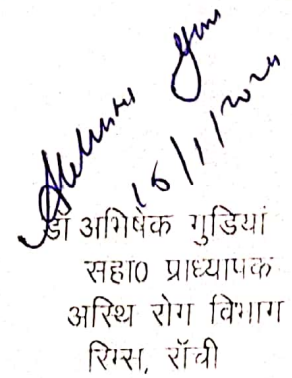 16/1/2024
डॉ अभिषेक गुडियां
सहा0 प्राध्यापक
अस्थि रोग विभाग
रिम्स, राँची